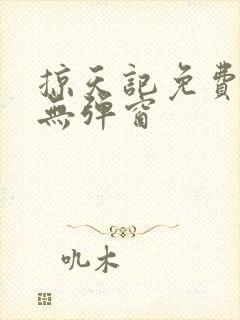 掠天記免費
無彈窗
吼木